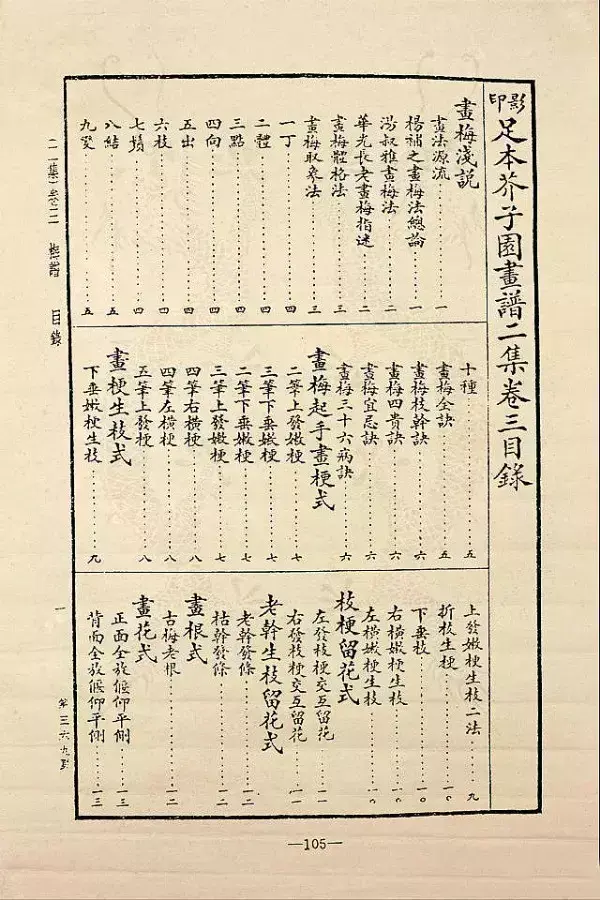 影印足本芥子園畫譜二集卷三目錄
畫梅淺說
畫法源流 一
楊補之畫梅法總論 一
湯叔雅畫梅法 二
華光長老畫梅指迷 二
畫梅體格法 三
畫梅取象法 三
一丁 四
二體 四
三點 四
四向 四
五出 四
六枝 四
七鬚 四
八結 五
九變 五
十種 五
畫梅全訣 五
畫梅枝幹訣 六
畫梅四貴訣 六
畫梅宜忌訣 六
畫梅三十六病訣 六
畫梅起手畫梗式
二筆上發嫩梗 七
三筆下垂嫩梗 七
二筆下垂嫩梗 七
三筆上發嫩梗 七
四筆右橫梗 八
四筆左橫梗 八
五筆上發梗 八
畫梗生枝式
下垂嫩梗生枝 九
上發嫩梗生枝二法 九
折枝生梗 一〇
下垂枝 一〇
右橫嫩梗生枝 一〇
左橫嫩梗生枝 一〇
枝梗留花式
左發枝梗交互留花 一一
右發枝梗交互留花 一一
老幹生枝留花式
老幹發條 一二
枯幹發條 一二
畫根式
古梅老根 一二
畫花式
正面全放偃仰平側 一三
背面全放偃仰平側 一三
(二集)卷三 梅譜 目錄
一
第三六九對
—105—